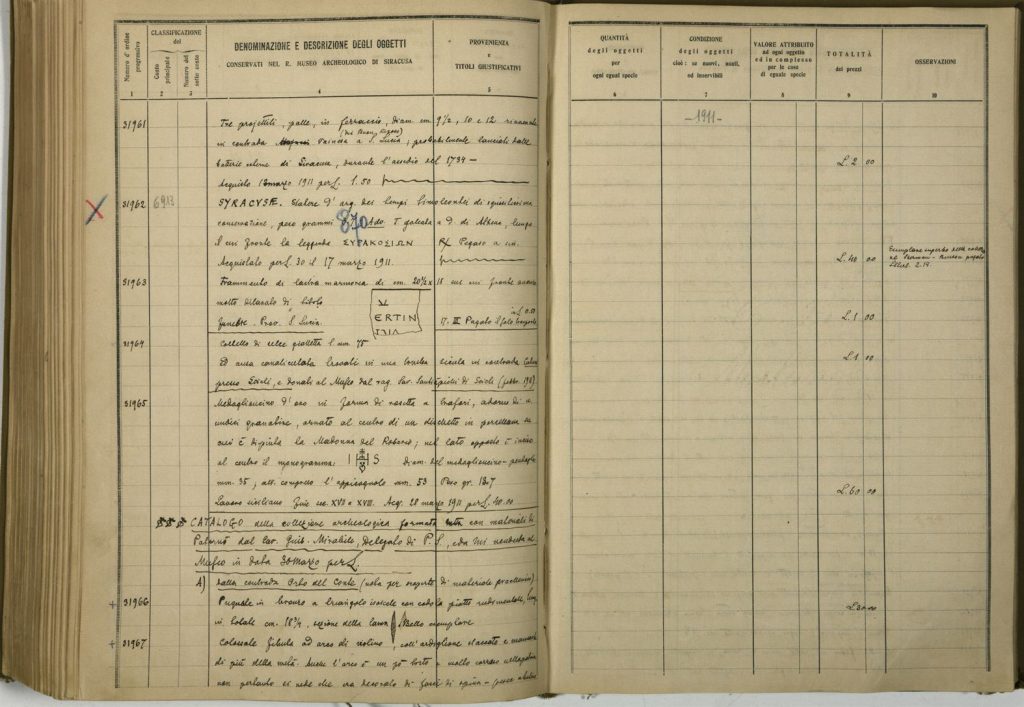 Numero d'ordine progressivo
CLASSIFICAZIONE
del
Conto principale
Numero del sotto conto
DENOMINAZIONE E DESCRIZIONE DEGLI OGGETTI
CONSERVATI NEL R. MUSEO ARCHEOLOGICO DI SIRACUSA
PROVENIENZA
e
TITOLI GIUSTIFICATIVI
1 2 3 4 5
31961 Tre projettili, palle, in ferraccio, diam. cm 9½, 10 e 12 rinvenute
in contrada a S. Lucia; probabilmente lanciati dalle
batterie di Siracusa, durante l'assedio del 1734 —
Acquisto 13 marzo 1911 per L. 1.50
31962 6913 SYRACVSÆ. Statere d'arg. dei tempi Timoleontei di squisitissima
conservazione, peso grammi 870 T. galeata a D. di Athena, lungo
il cui fronte la leggenda ΣΥΡΑΚΟΣΙΩΝ R/ Pegaso a sin.
Acquistato per L. 30 il 17 marzo 1911.
31963 Frammento di lastra marmorea di cm. 20½ x 18 sul cui fronte avanzo
molto dilavato di titolo
funebre. Prov. S. Lucia.
ERTIN
17. III Pagato
31964 Coltello di selce gialletta l. mm. 75
Ed ansa canaliculata trovati in una tomba sicula in contrada
presso Scicli, e donati al Museo dal rag. Sav. Santiapichi di Scicli (febbr. 1911).
31965 Medaglioncino d'oro in forma di rosetta a trafori, adorno di
undici granatine, ornato al centro di un dischetto in porcellana su
cui è dipinta la Madonna del Rosario; nel lato opposto è inciso
al centro il monogramma I S diam. del medaglioncino-pendaglio
mm. 35; alt. compreso l'appiccagnolo mm. 53 Peso gr. 12.7
Lavoro siciliano fine sec. XVII o XVIII. Acq. 28 marzo 1911 per L. 40.00
CATALOGO della collezione archeologica formata con materiali di
Paternò dal Cav. Guis. Mirabile, Delegato di P. S, e da lui venduta al
Museo in data 30 Marzo per L.
A) Dalla contrada Orto del Conte (nota per scoperte di materiale preellenico).
+ 31966 Pugnale in bronzo a triangolo isoscele con codolo piatto rudimentale, lungo
in totale cm. 18¾, sezione della lama Bello esemplare
+ 31967 Colossale fibula ad arco di violino, coll'ardiglione staccato e mancante
di più della metà. Anche l'arco è un pò torto e molto corroso nella patina
non pertanto si vede che era decorato di fasci di spina-pesce
QUANTITÀ
degli oggetti
per
ogni egual specie
CONDIZIONE
degli oggetti
cioè: se nuovi, usati,
od inservibili
VALORE ATTRIBUITO
ad ogni oggetto
ed in complesso
per le cose
di eguale specie
TOTALITÀ
dei prezzi
OSSERVAZIONI
6 7 8 9 10
-1911-
L. 2 00
L. 40 00
L. 1 00
L. 1 00
L. 60 00
L. 30 00